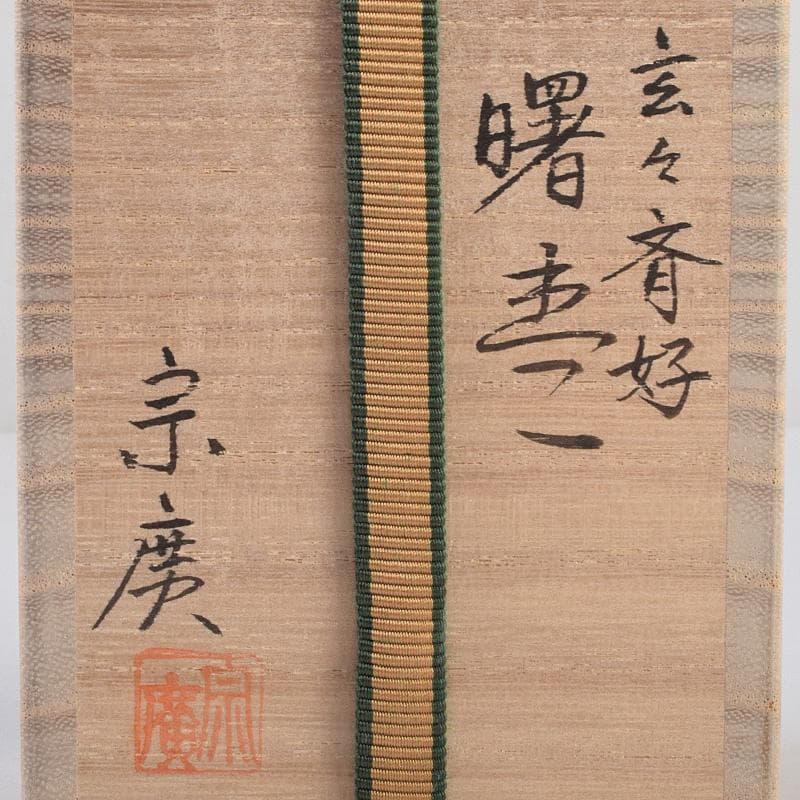 玄々斎好
曙棗
宗廣
宗廣